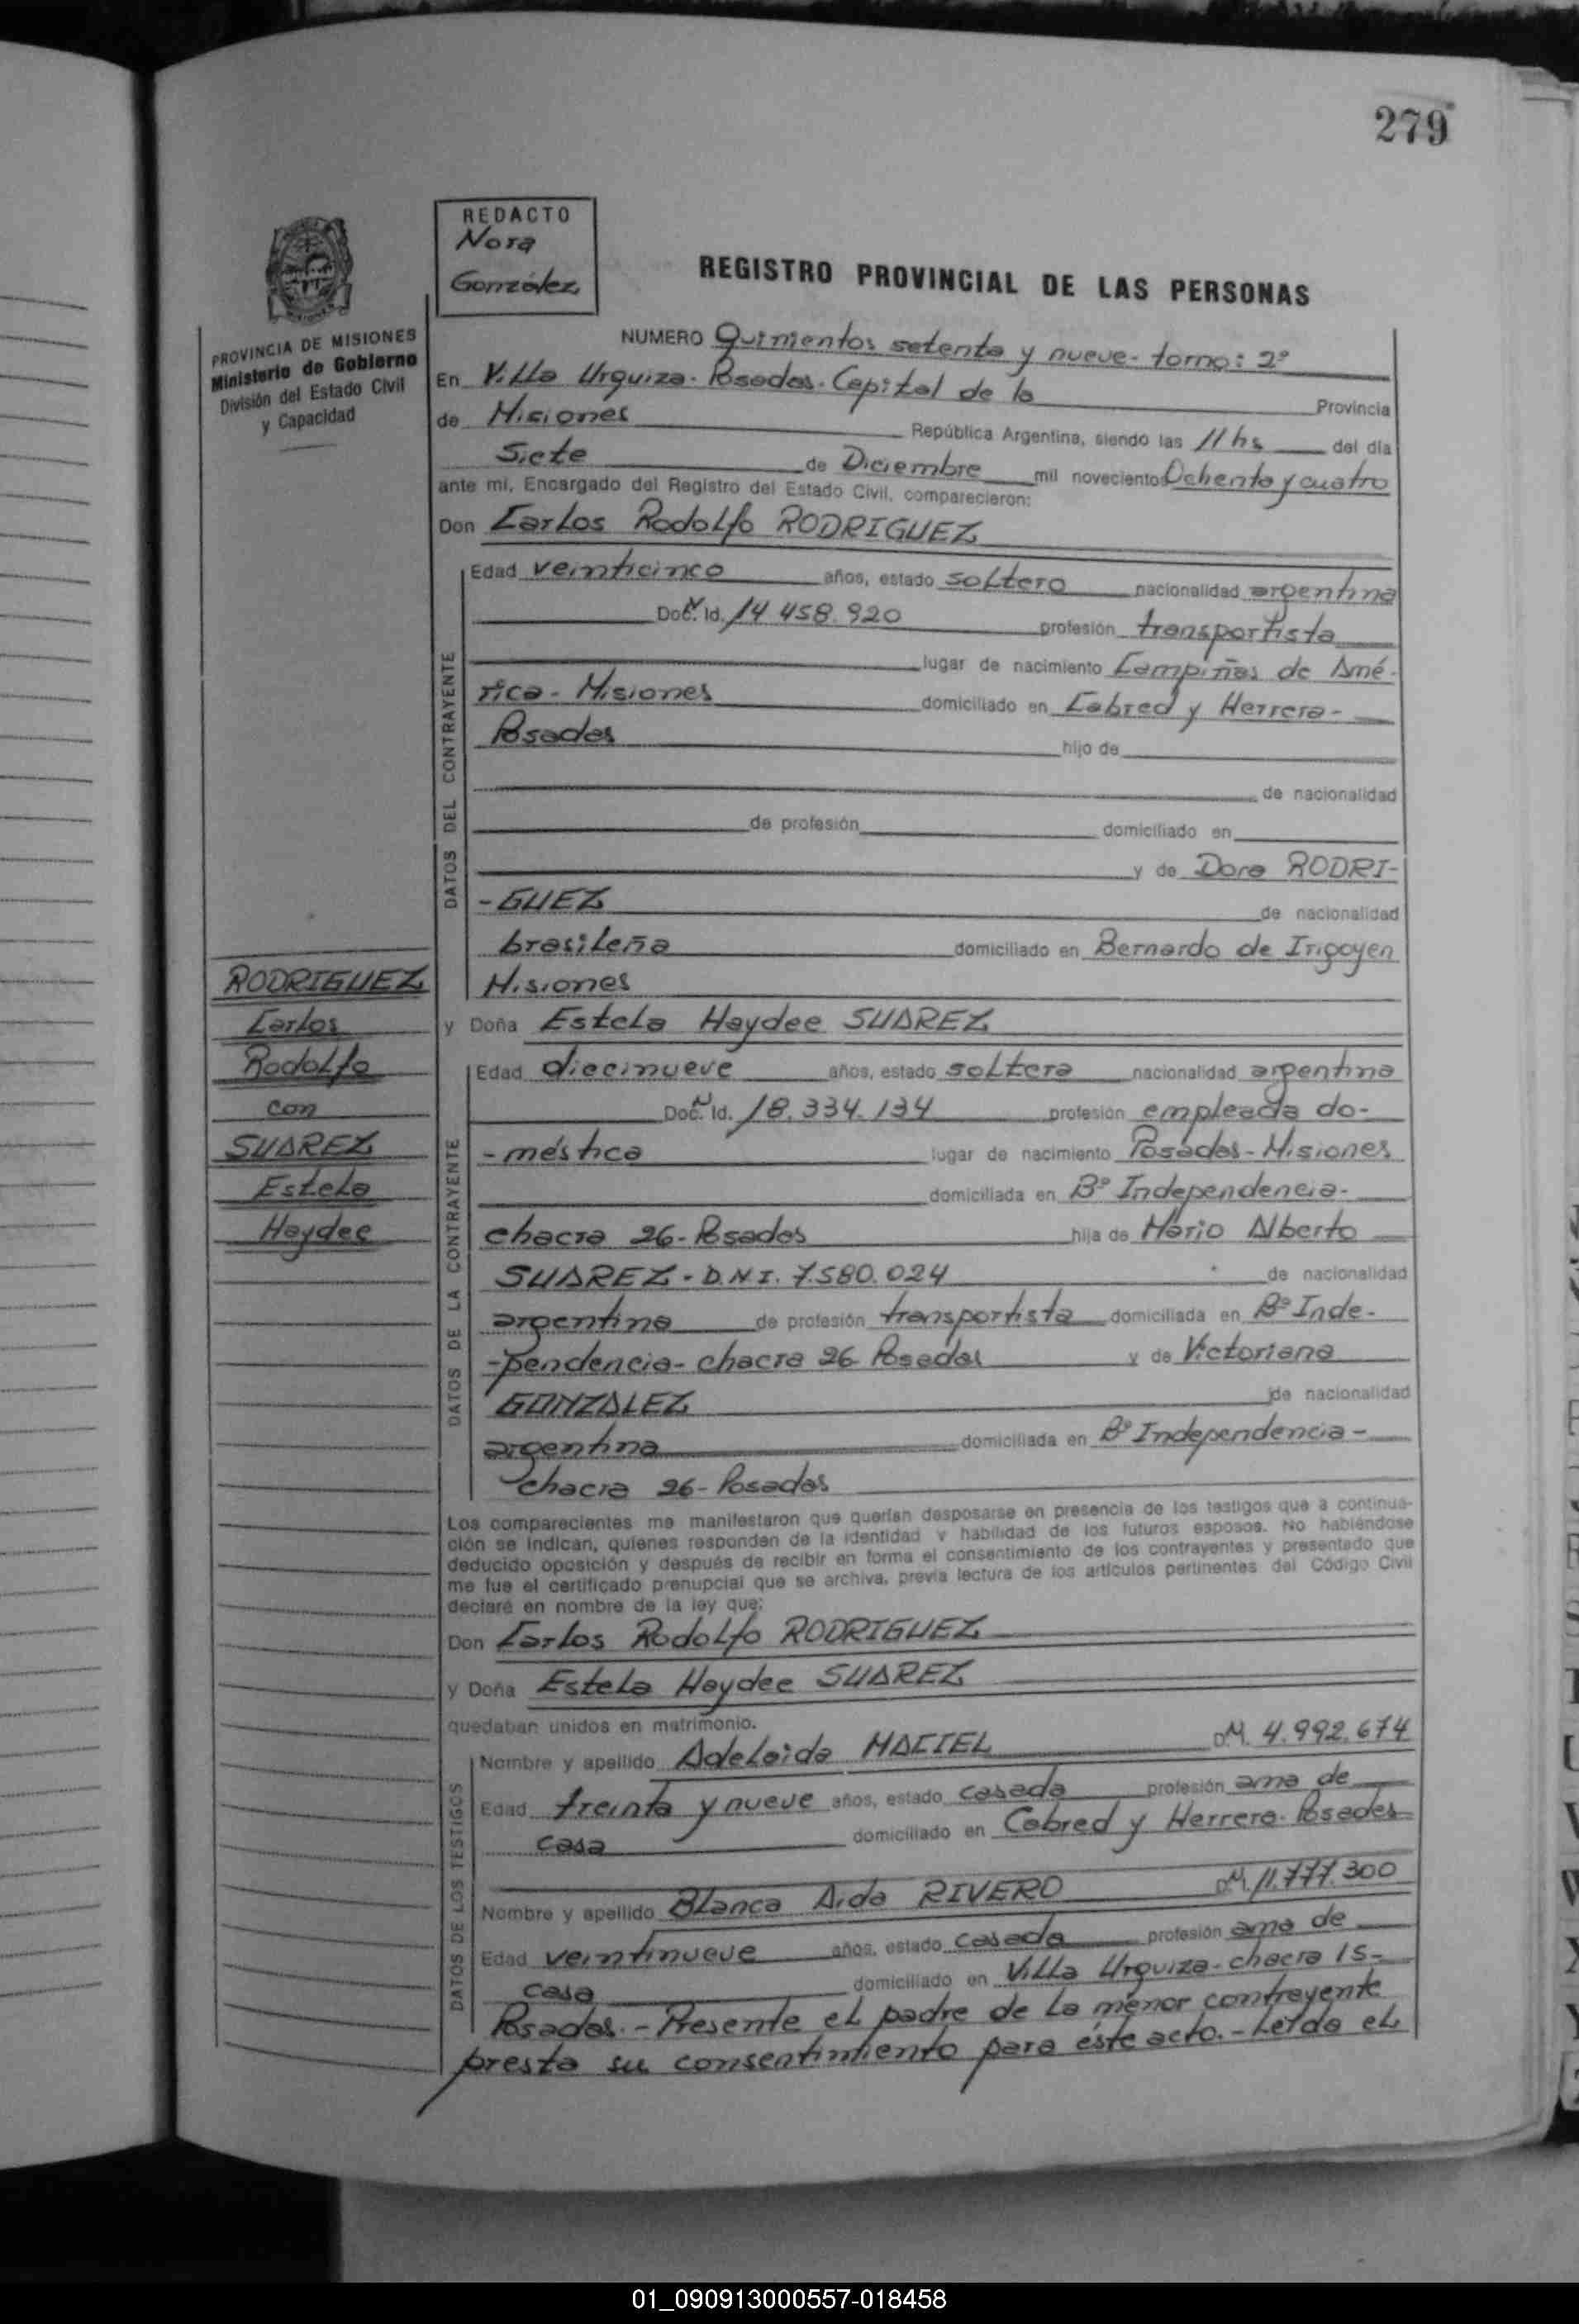 279
REDACTO
Nora
González
REGISTRO PROVINCIAL DE LAS PERSONAS
PROVINCIA DE MISIONES
Ministerio de Gobierno
División del Estado Civil
y Capacidad
NUMERO Quinientos setenta y nueve- tomo: 2º
En Villa Urquiza- Posadas. Capital de la Provincia
de Misiones República Argentina, siendo las 11 hs del día
Siete de Diciembre mil novecientos Ochenta y cuatro
ante mí, Encargado del Registro del Estado Civil, comparecieron:
Don Carlos Rodolfo RODRIGUEZ
DATOS DEL CONTRAYENTE
Edad veinticinco años, estado soltero nacionalidad argentina
Doc. Id. 14 458.920 profesión transportista
lugar de nacimiento Campiñas de Amé-
rica- Misiones domiciliado en Cabred y Herrera-
Posadas hijo de
de nacionalidad
de profesión domiciliado en
y de Dora RODRI-
-GUEZ de nacionalidad
brasileña domiciliado en Bernardo de Irigoyen
Misiones
RODRIGUEZ
Carlos
Rodolfo
con
SUAREZ
Estela
Haydee
y Doña Estela Haydee SUAREZ
DATOS DE LA CONTRAYENTE
Edad diecinueve años, estado soltera nacionalidad argentina
Doc. Id. 18.334.134 profesión empleada do-
-méstica lugar de nacimiento Posadas- Misiones
domiciliada en Bº Independencia-
chacra 26- Posadas hija de Mario Alberto
SUAREZ- D.N.I. 7.580.024 de nacionalidad
argentina de profesión transportista domiciliada en Bº Inde-
-pendencia- chacra 26 Posadas y de Victoriana
GONZALEZ de nacionalidad
argentina domiciliada en Bº Independencia-
chacra 26- Posadas
Los comparecientes me manifestaron que querían desposarse en presencia de los testigos que a continua-
ción se indican, quienes responden de la identidad y habilidad de los futuros esposos. No habiéndose
deducido oposición y después de recibir en forma el consentimiento de los contrayentes y presentado que
me fue el certificado prenupcial que se archiva, previa lectura de los artículos pertinentes del Código Civil
declaré en nombre de la ley que:
Don Carlos Rodolfo RODRIGUEZ
y Doña Estela Haydee SUAREZ
quedaban unidos en matrimonio.
DATOS DE LOS TESTIGOS
Nombre y apellido Adelaida MACIEL 4.992.674
Edad treinta y nueve años, estado casada profesión ama de
casa domiciliado en Cabred y Herrera- Posadas
Nombre y apellido Blanca Aida RIVERO 11.777.300
Edad veintinueve años, estado casada profesión ama de
casa domiciliado en Villa Urquiza- chacra 15-
Posadas.- Presente el padre de la menor contrayente
presta su consentimiento para éste acto.- Leída el
01_090913000557-018458